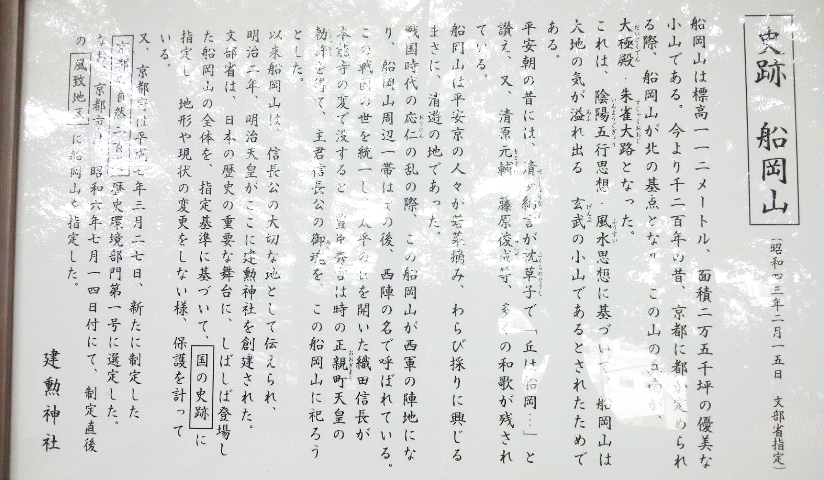 史跡 船岡山
(昭和四三年二月一五日 文部省指定)
船岡山は標高一一二メートル、面積二万五千坪の優美な
小山である。今より千二百年の昔、京都に都が定められ
る際、船岡山が北の基点となり、この山の が、
大極殿・朱雀大路となった。
これは、陰陽五行思想、風水思想に基づいて、船岡山は
大地の気が溢れ出る、玄武の小山であるとされたためで
ある。
平安朝の昔には、清少納言が枕草子で「丘は船岡…」と
讃え、又、清原元輔、藤原俊成等、多くの和歌が残され
ている。
船岡山は平安京の人々が若菜摘み、わらび採りに興じる
まさに、清遊の地であった。
戦国時代の応仁の乱の際、この船岡山が西軍の陣地にな
り、船岡山周辺一帯はその後、西陣の名で呼ばれている。
この戦国の世を統一し、太平の世を開いた織田信長が
本能寺の変で没すると、豊臣秀吉は時の正親町天皇の
勅許を得て、主君信長公の御霊を、この船岡山に祀ろう
とした。
以来船岡山は、信長公の大切な地として伝えられ、
明治二年、明治天皇がここに建勲神社を創建された。
文部省は、日本の歴史の重要な舞台に、しばしば登場し
た船岡山の全体を、指定基準に基づいて、国の史跡に
指定し、地形や現状の変更をしない様、保護を計って
いる。
又、京都市は平成七年三月二七日、新たに制定した
京都の自然二百選 歴史環境部門第一号に選定した。
なお、京都市は、昭和六年七月一四日付にて、制定直後
の風致地区に船岡山も指定した。
建勲神社